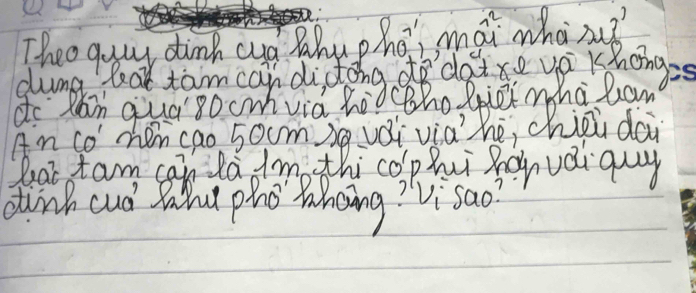 Theo quy định của khu phố, mỗi nhà sử
dụng bậc tam cấp di động để dắt xe và không
đc lấn quá 80cm vỉa hè, cho biết nhà bạn
An có nền cao 50cm so với vỉa hè, chiều dài
bậc tam cấp là 1m, thì có phù hợp với quy
định của khu phố không? Vì sao?
CS